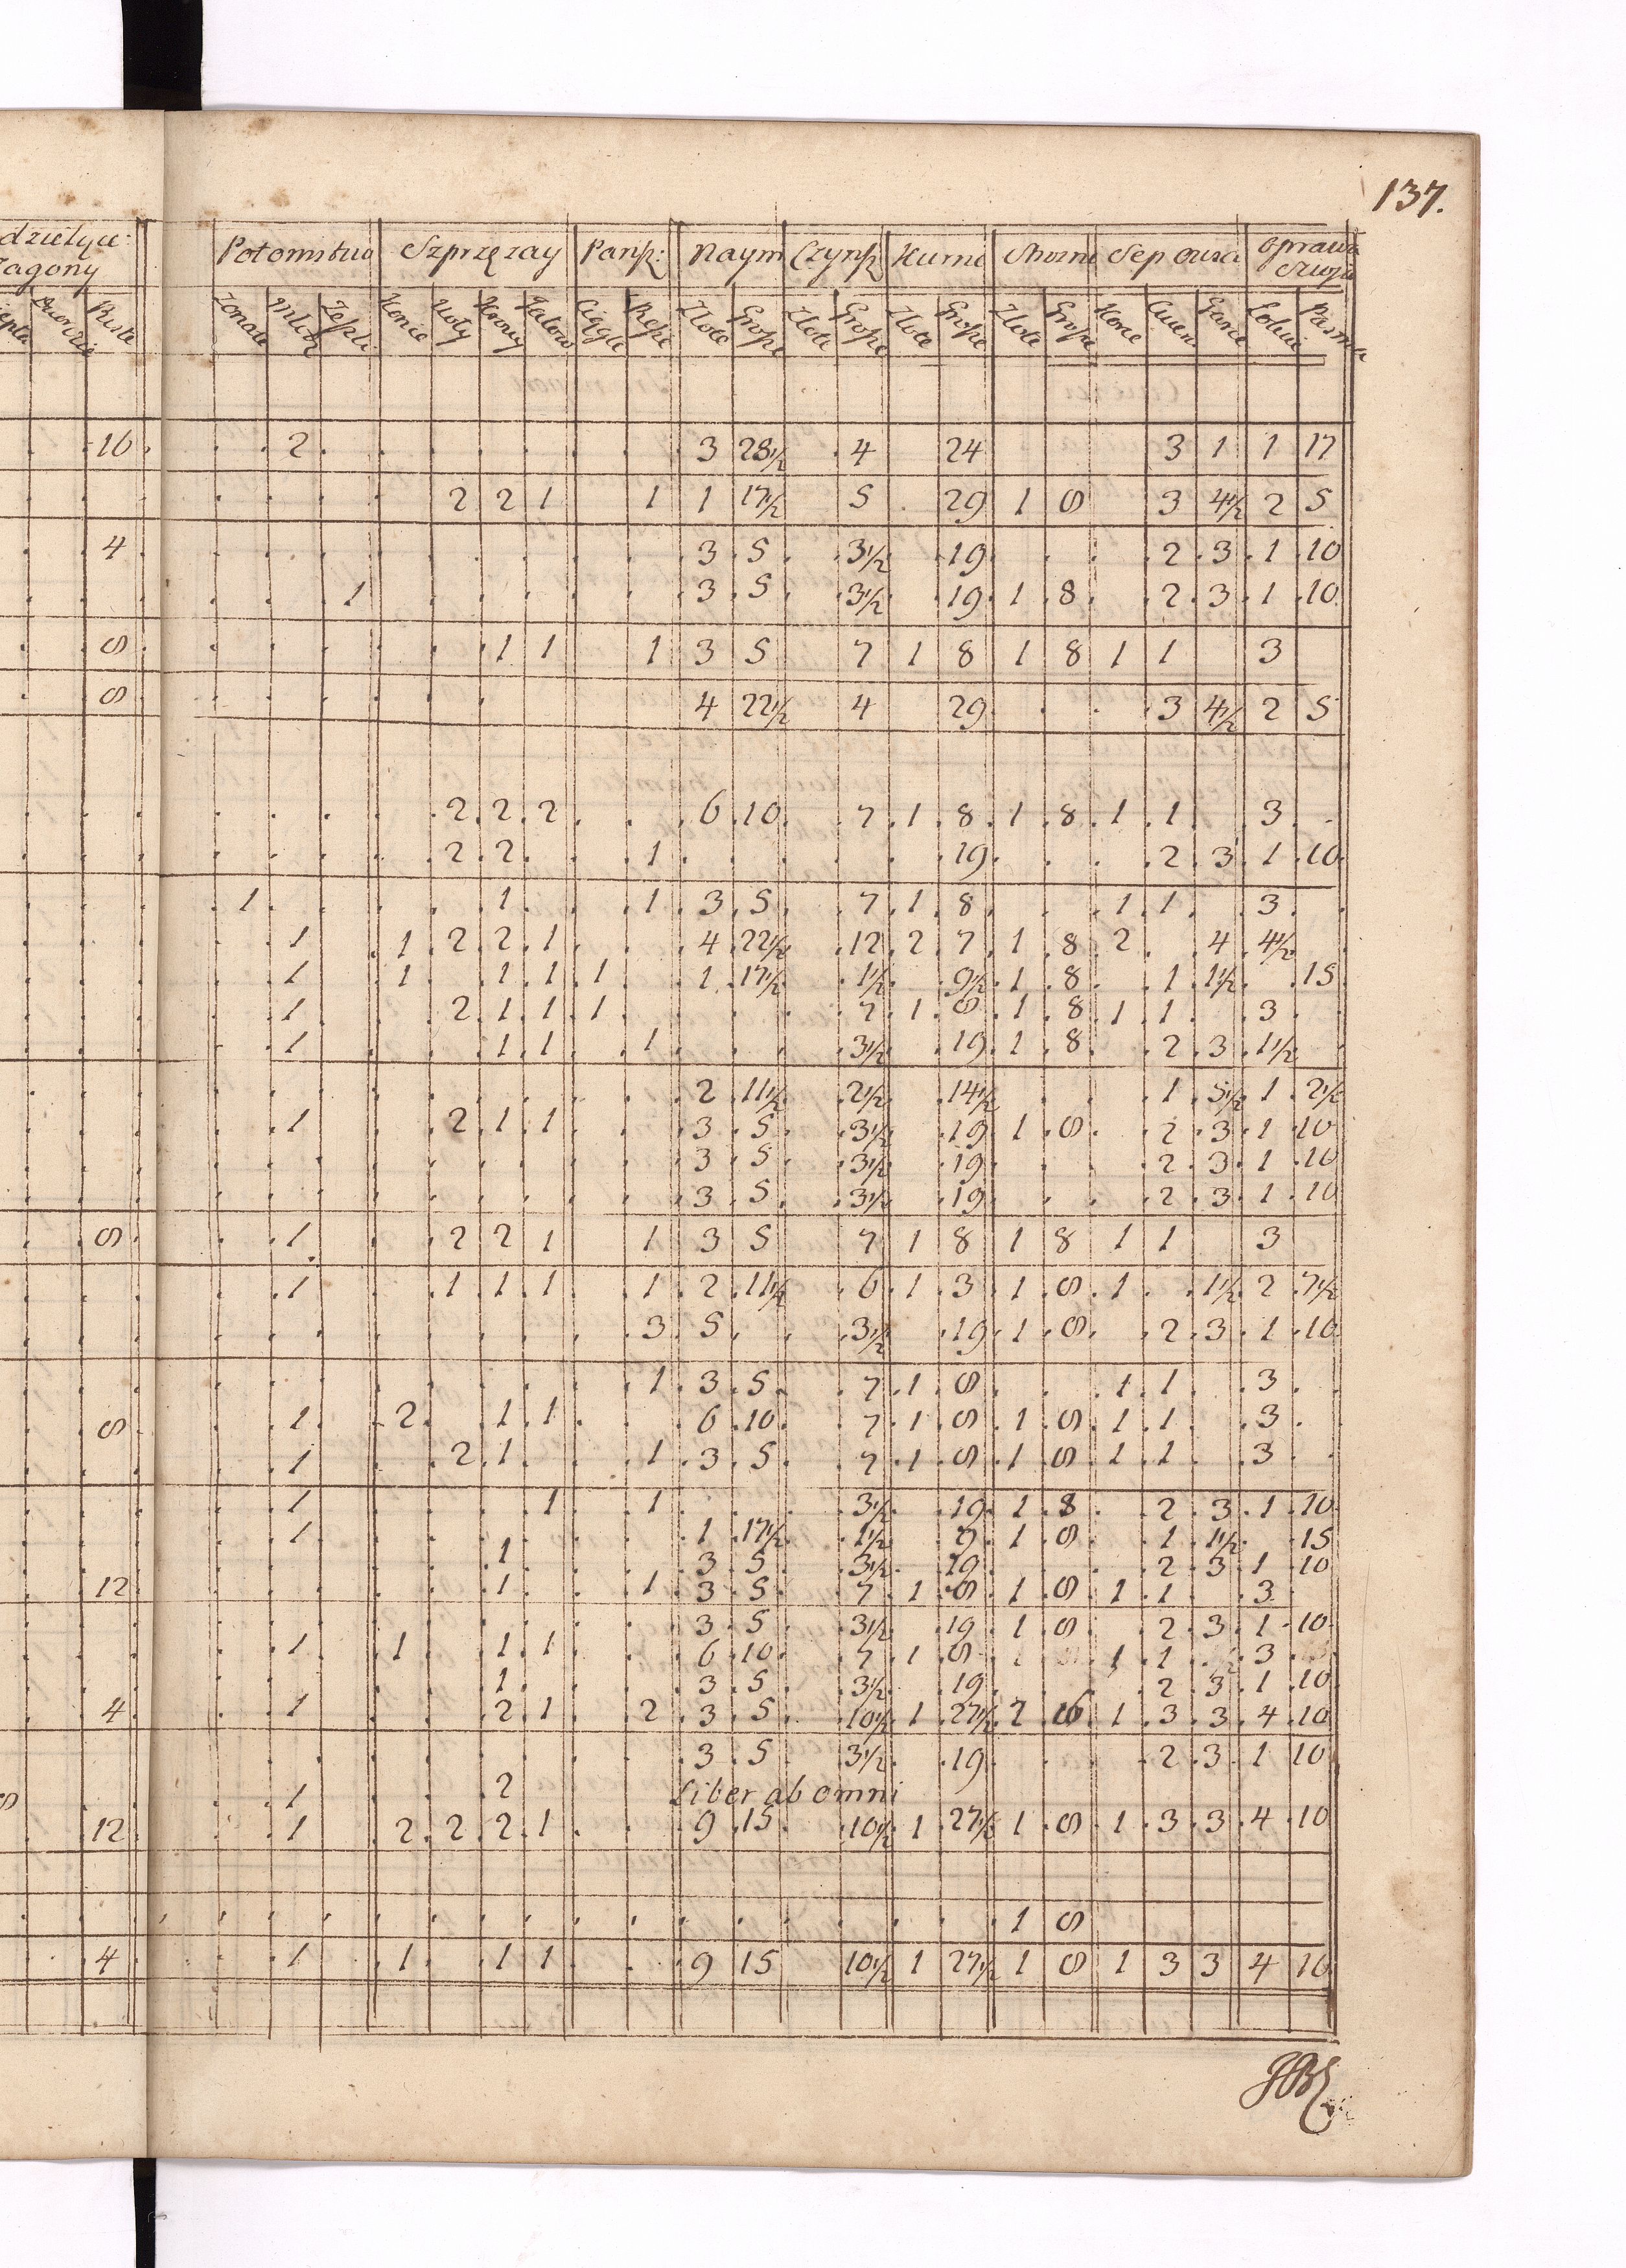 137.
dzielące: Potomstwo Szprzęzay Pańsz: Naym Czynsz Kurne Strożne Sep Owsa Oprawa
Zagony
Konie Woły Krowy Złote Grosze Złote Grosze Złote Grosze Złote Grosze
16 2 3 28½ 4 24 3 1 1 17
2 2 1 1 1 17½ 5 29 1 8 3 4½ 2 5
4 3 5 3½ 19 2 3 1 10
1 3 5 3½ 19 1 8 2 3 1 10
8 1 1 1 3 5 7 1 8 1 8 1 1 3
8 4 22½ 4 29 3 4½ 2 5
2 2 2 6 10 7 1 8 1 8 1 1 3
2 2 1 19 2 3 1 10
1 1 1 3 5 7 1 8 1 1 3
1 1 2 2 1 4 22½ 12 2 7 1 8 2 4 4½
1 1 1 1 1 1 17½ 1½ 9½ 1 8 1 1½ 15
1 2 1 1 1 7 1 8 1 8 1 1 3
1 1 1 1 3½ 19 1 8 2 3 1½
2 11½ 2½ 14½ 1 5½ 1 2½
1 2 1 1 3 5 3½ 19 1 8 2 3 1 10
3 5 3½ 19 2 3 1 10
3 5 3½ 19 2 3 1 10
8 1 2 2 1 1 3 5 7 1 8 1 8 1 1 3
1 1 1 1 1 2 11½ 6 1 3 1 8 1 1½ 2 7½
3 5 3½ 19 1 8 2 3 1 10
1 3 5 7 1 8 1 1 3
8 1 2 1 1 6 10 7 1 8 1 8 1 1 3
1 2 1 1 3 5 7 1 8 1 8 1 1 3
1 1 1 3½ 19 1 8 2 3 1 10
1 1 17½ 1½ 9 1 8 1 1½ 15
1 3 5 3½ 19 2 3 1 10
12 1 1 3 5 7 1 8 1 8 1 1 3
3 5 3½ 19 1 8 2 3 1 10
1 1 1 1 6 10 7 1 8 1 1 3
1 3 5 3½ 19 2 3 1 10
4 1 2 1 2 3 5 10½ 1 27½ 2 16 1 3 3 4 10
3 5 3½ 19 2 3 1 10
8 1 2 Liber ab omni
12 1 2 2 2 1 9 15 10½ 1 27½ 1 8 1 3 3 4 10
1 8
4 1 1 1 1 9 15 10½ 1 27½ 1 8 1 3 3 4 10